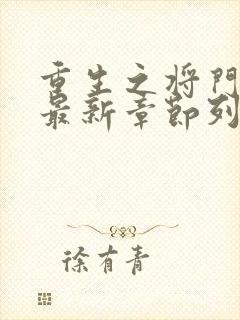 重生之将门
最新章节列
徐有青